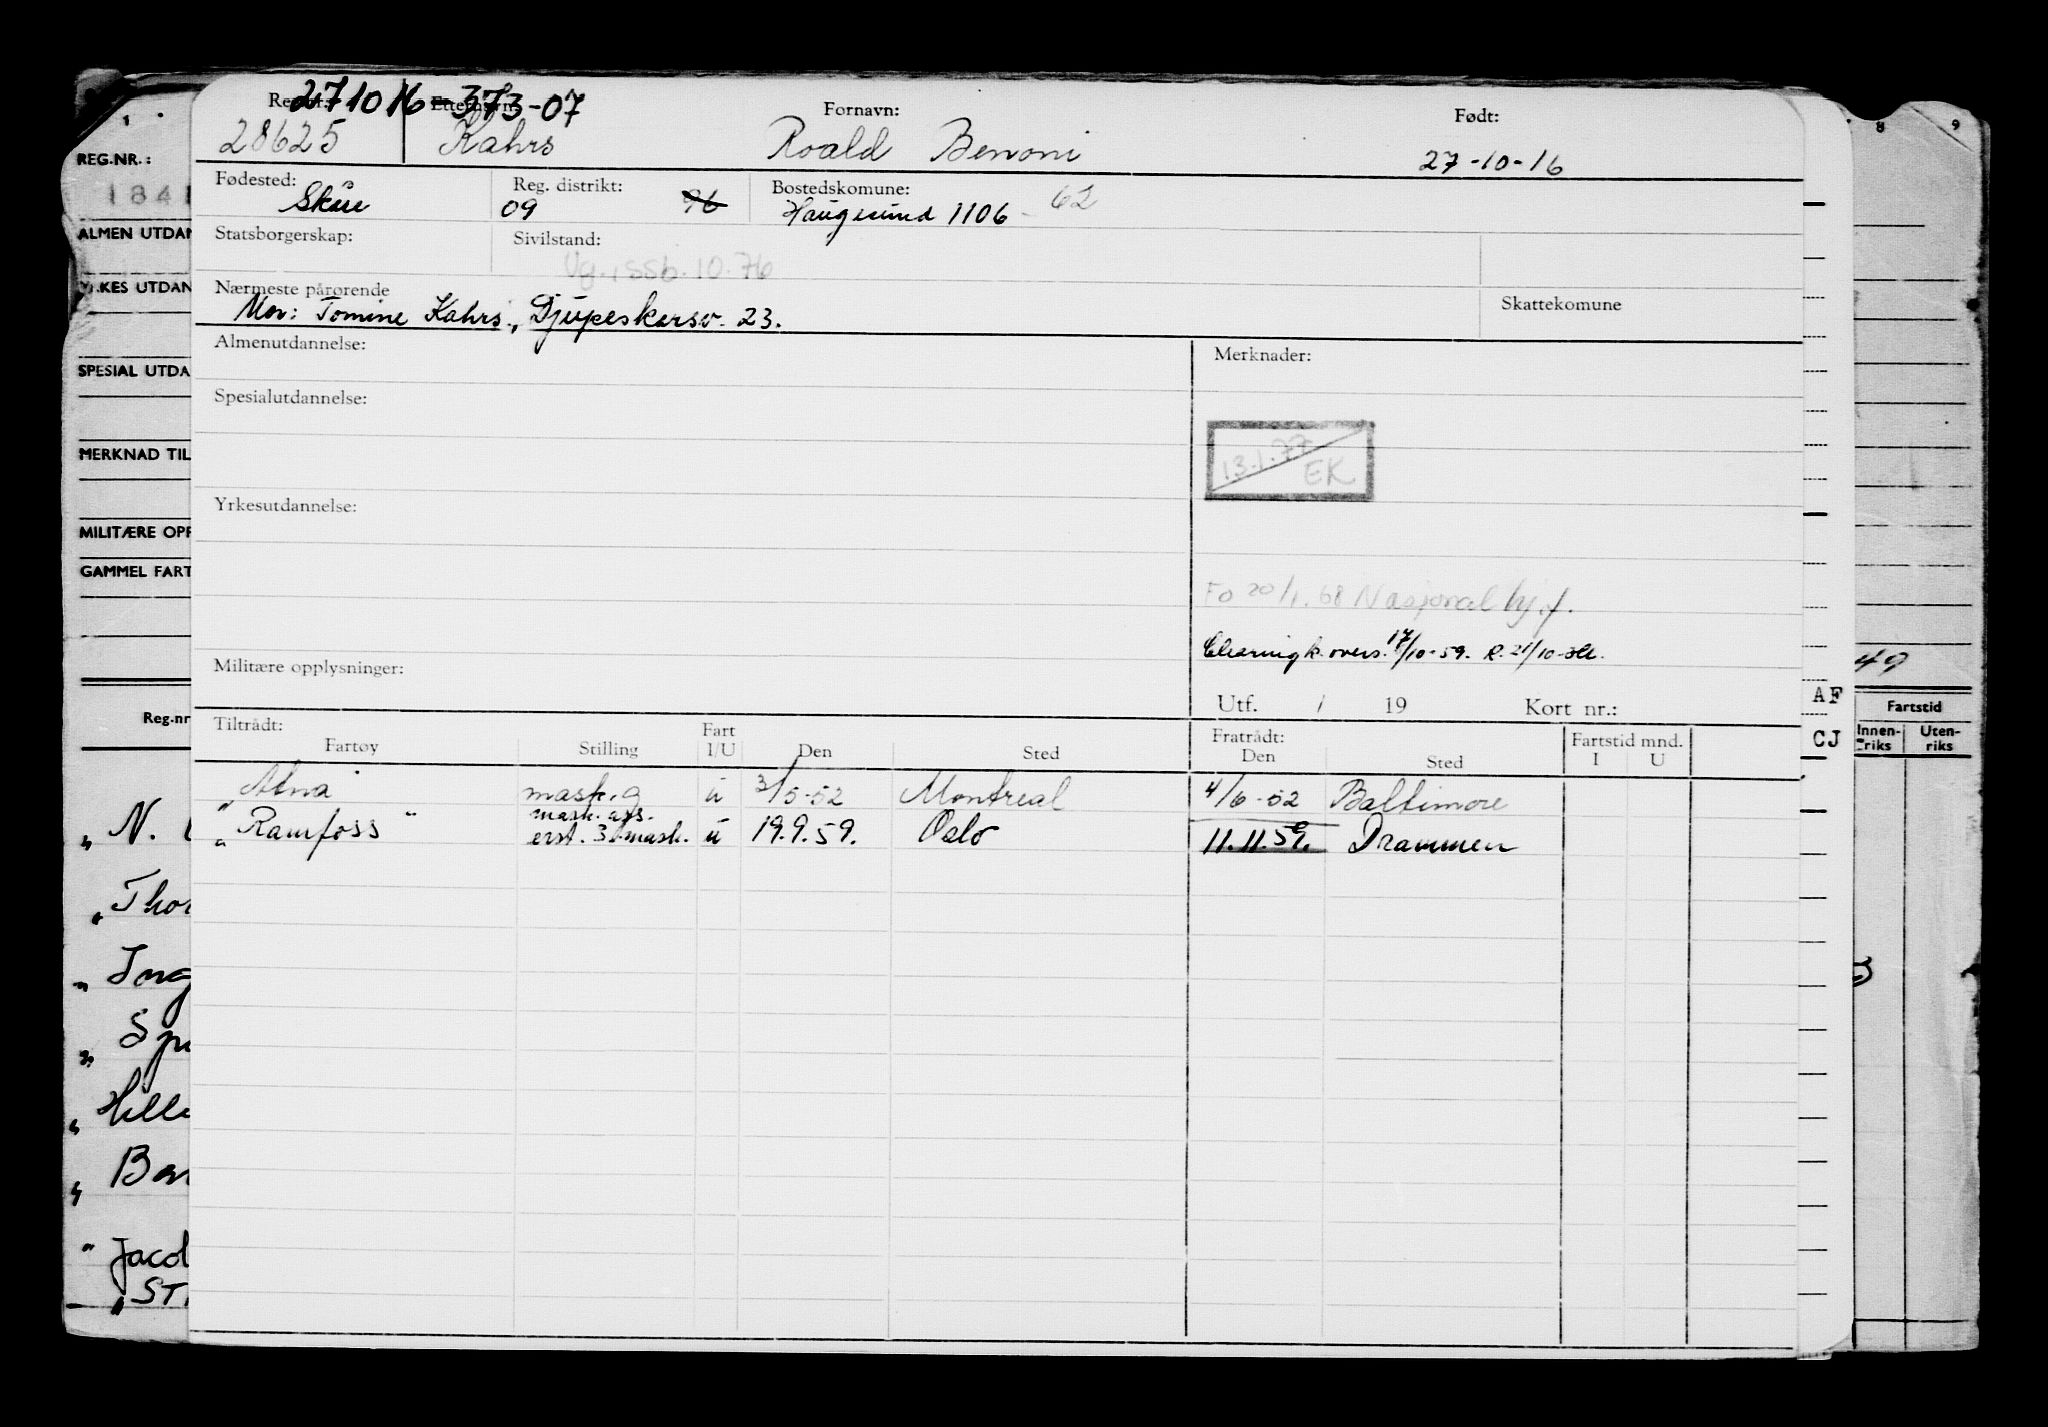 271016 373-07
Reg.nr. Etternavn: Fornavn: Født:
28625 Kahrs Roald Benoni 27-10-16
Fødested: Reg. distrikt: Bostedskomune:
09 96 Haugesund 1106 - 62
Statsborgerskap: Sivilstand:
Vg., ssb. 10.76
Nærmeste pårørende Skattekomune
Mor: Tomine Kahrs, Djupeskarsv. 23.
Almenutdannelse: Merknader:
Spesialutdannelse:
13.1.77 EK
Yrkesutdannelse:
Fo 20/1.68 Nasjonal hj.f.
Clearingk. overs. 17/10-59. R. 21/10
Militære opplysninger:
Utf. / 19 Kort nr.:
Tiltrådt: Fratrådt:
Fartøy Stilling Fart I/U Den Sted Den Sted Fartstid mnd. I U
" Atna mask.g u 3/5-52 Montreal 4/6-52 Baltimore
mask. ass.
" Ramfoss " erst. 3. mask. u 19.9.59. Oslo 11.11.59. Drammen
REG.NR.:
1841
ALMEN UTDAN
YRKES UTDAN
SPESIAL UTDA
MERKNAD TIL
MILITÆRE OPP
GAMMEL FART
Reg.nr
" N.
" Thor
" Ing
" Hell
" Jacol
" ST
1
8 9
49
AF
CJ
Fartstid
Innen-riks Uten-riks